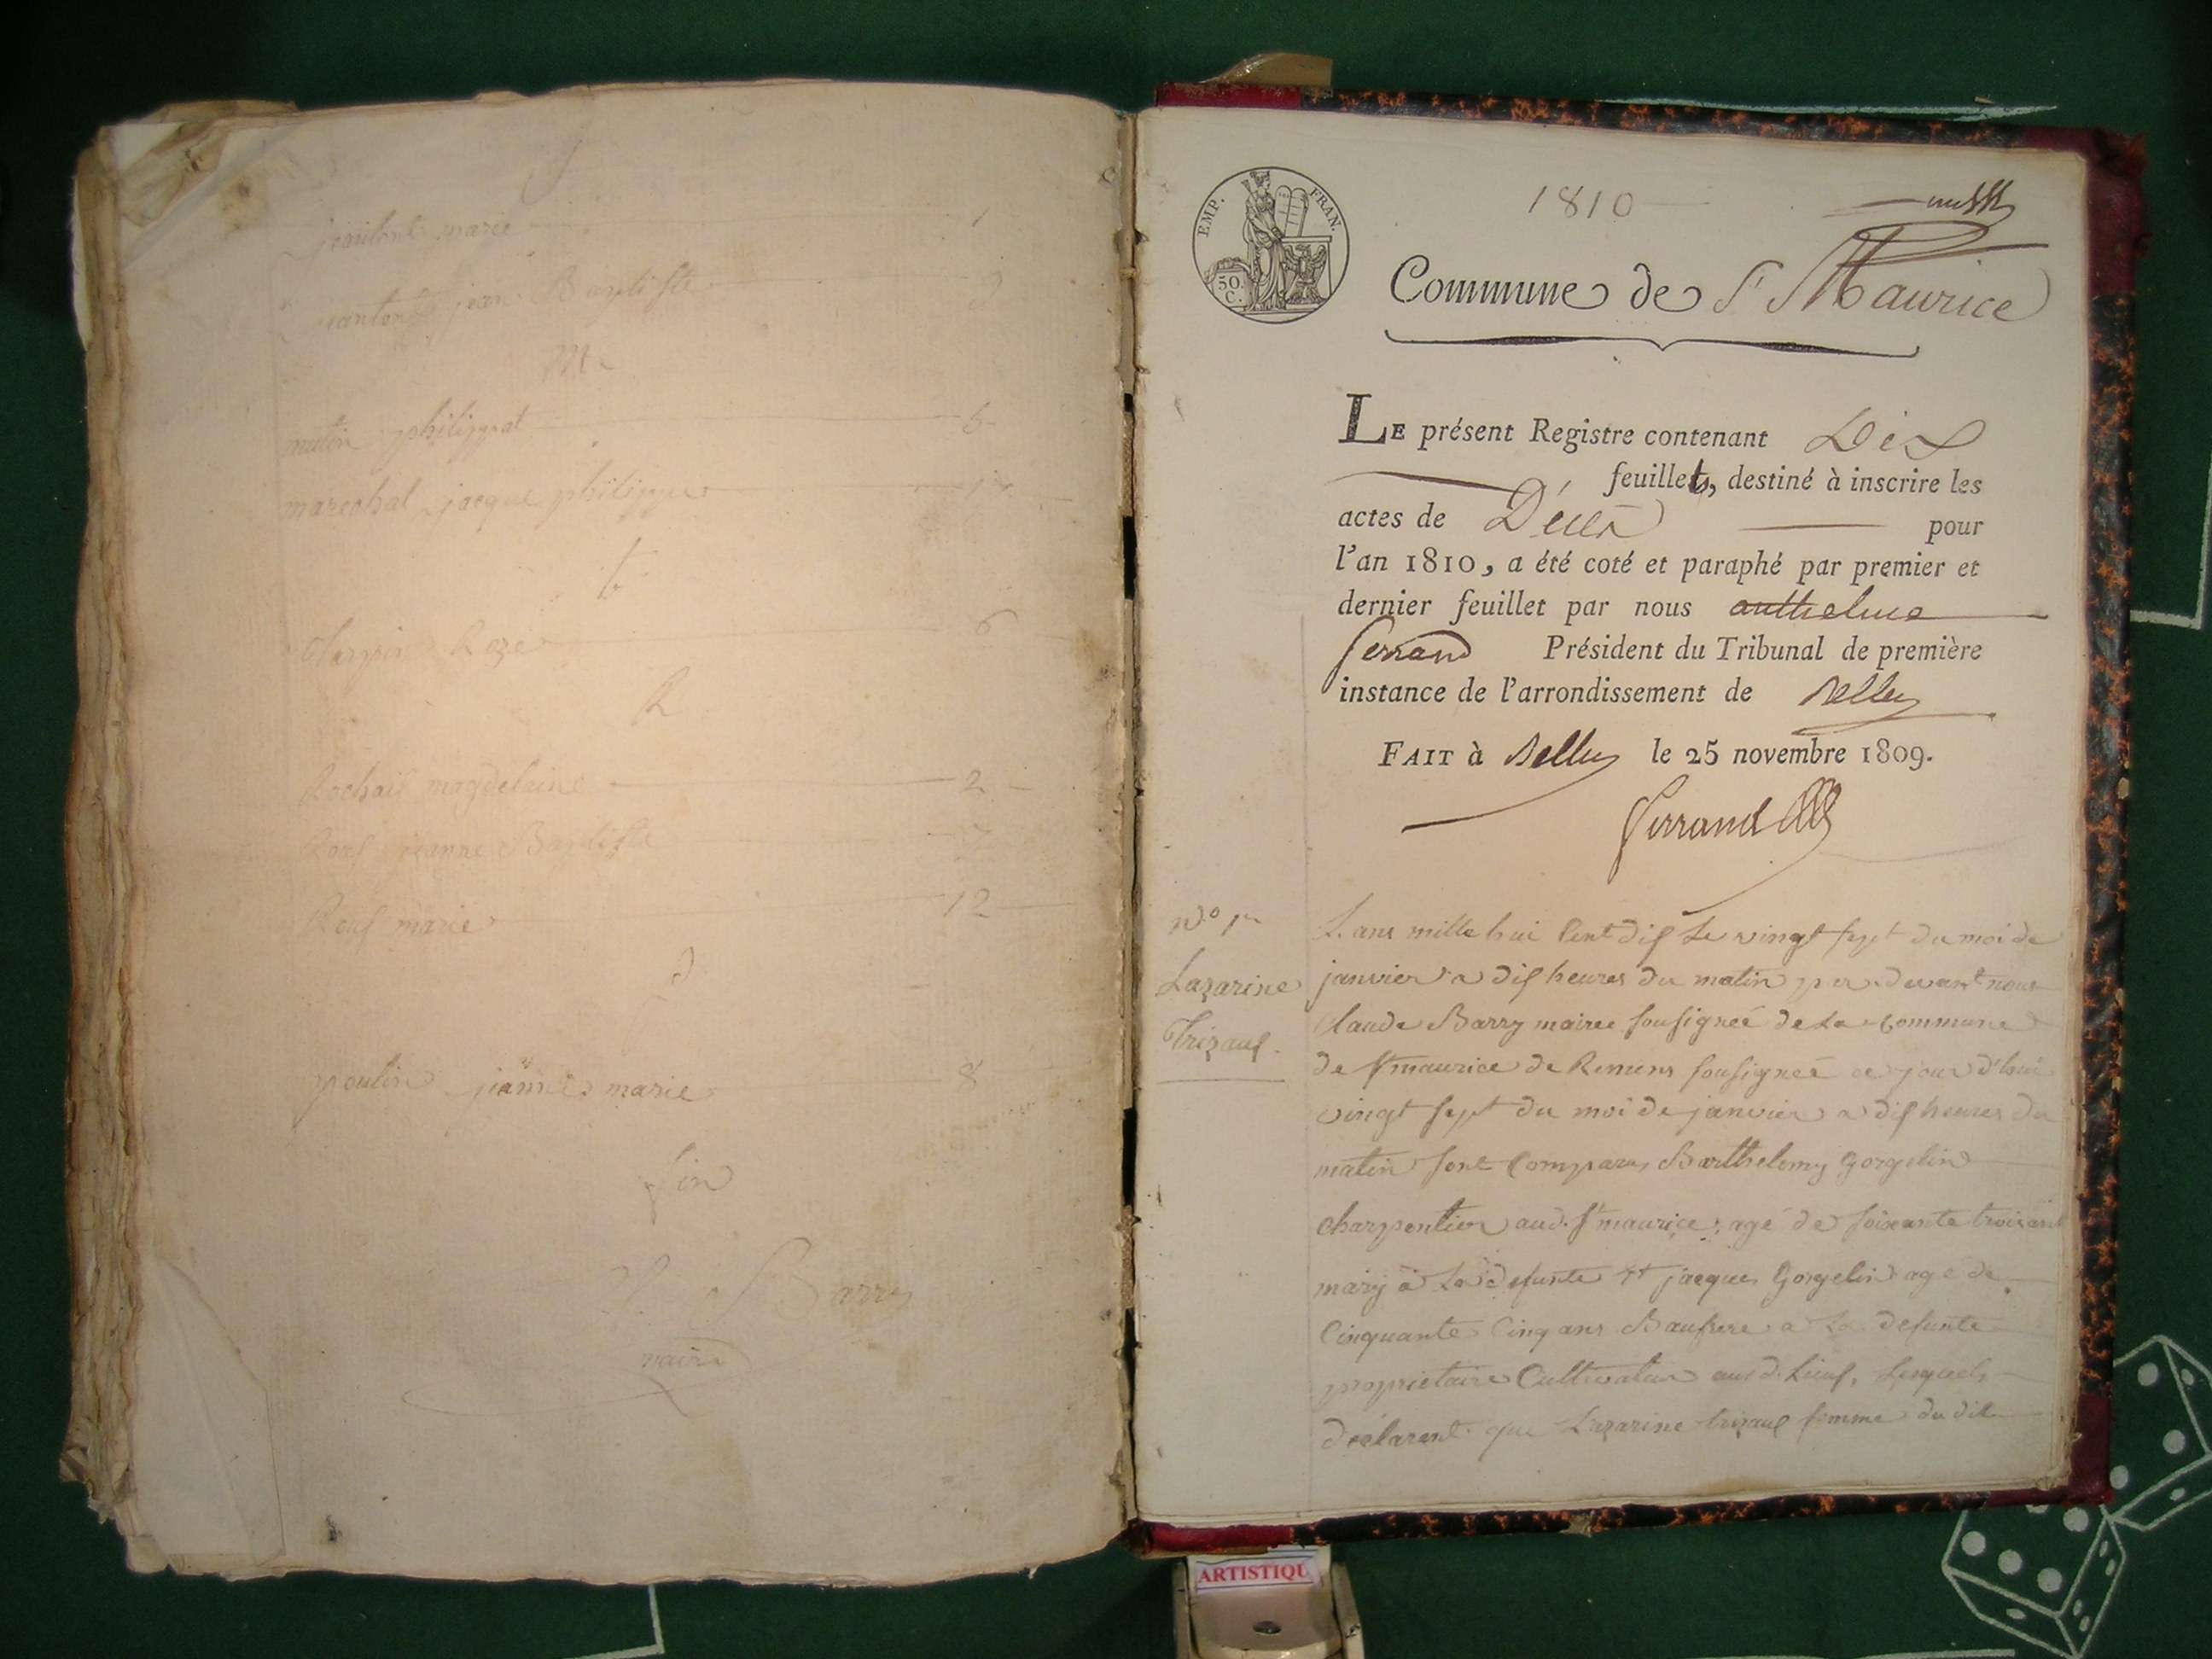 J
jeantont marie 1
jeantont jean Baptiste
M
mutin philippat 6
marechal jacque philippe 17
t
Charpin Roze 6
R
Rochais magdelaine 2
Rouf jeanne Baptiste
Rouf marie 12
poulin jeanne marie 8
fin
Barry
maire
EMP. FRAN.
50 C.
1810
Commune de St Maurice
LE présent Registre contenant Dix
feuillets, destiné à inscrire les
actes de Décès pour
l'an 1810, a été coté et paraphé par premier et
dernier feuillet par nous anthelme
ferrand Président du Tribunal de première
instance de l'arrondissement de Belley
FAIT à Belley le 25 novembre 1809.
ferrand
No 1er
Lazarine
Trizauf
L'ans mille hui Cent dif Le vingt sept du moi de
janvier a dif heures du matin par devant nous
Claude Barry mairee sousigneé de La Commune
de St maurice de Remens sousigneé ce jour d'hui
vingt sept du moi de janvier a dif heures du
matin sont Comparus Barthelemy Gorgelin
charpentier aud. St maurice, agé de soixante trois ans
mary a La defunte et jacques Gorgelin agé de
Cinquante Cinq ans Baufrere a La defunte
proprietaire Cultivateur aud. Lieuf, Lesquels
declarent que Lazarine trizauf femme du dit
ARTISTIQU